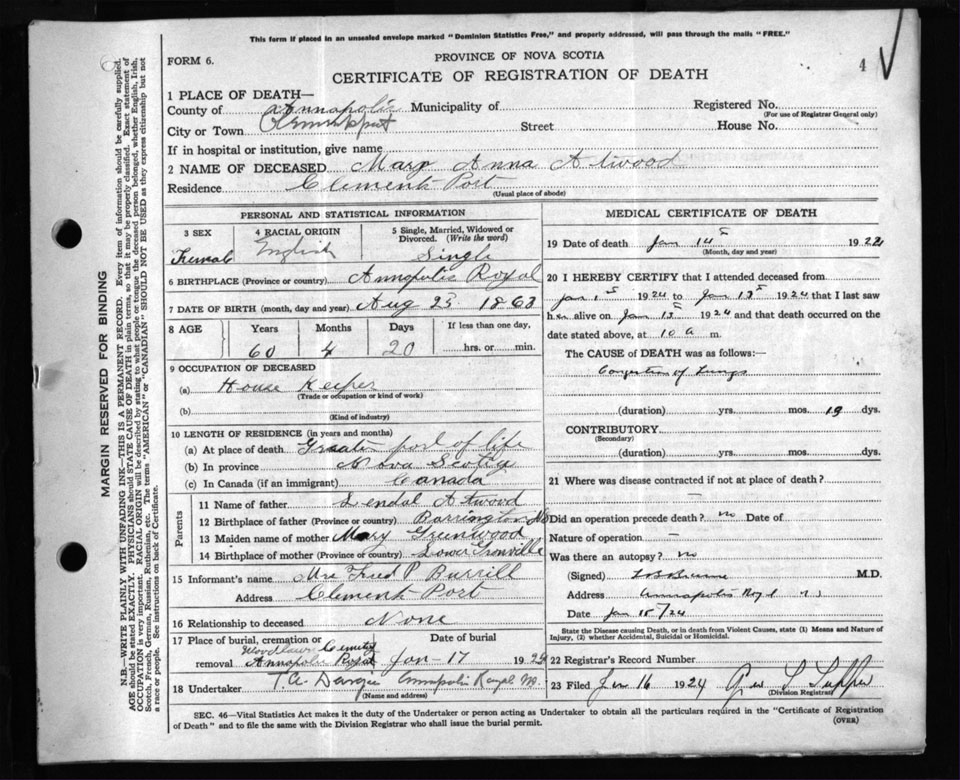 This form if placed in an unsealed envelope marked "Dominion Statistics Free," and properly addressed, will pass through the mails "FREE."
FORM 6.
PROVINCE OF NOVA SCOTIA
4
CERTIFICATE OF REGISTRATION OF DEATH
MARGIN RESERVED FOR BINDING
N.B.—WRITE PLAINLY WITH UNFADING INK—THIS IS A PERMANENT RECORD. Every item of information should be carefully supplied.
AGE should be stated EXACTLY. PHYSICIANS should STATE CAUSE OF DEATH in plain terms, so that it may be properly classified. Exact statement of
OCCUPATION is very important. RACIAL ORIGIN will be described by stating to what people or tongue the deceased person belonged, whether English, Irish,
Scotch, French, German, Russian, Ruthenian, etc. The terms "AMERICAN" or "CANADIAN" SHOULD NOT BE USED as they express citizenship but not
a race or people. See instructions on back of Certificate.
1 PLACE OF DEATH—
County of Annapolis Municipality of Registered No.
(For use of Registrar General only)
City or Town Clementsport Street House No.
If in hospital or institution, give name
2 NAME OF DECEASED Mary Anna Atwood
Residence Clements Port
(Usual place of abode)
PERSONAL AND STATISTICAL INFORMATION
3 SEX 4 RACIAL ORIGIN 5 Single, Married, Widowed or Divorced. (Write the word)
Female English Single
6 BIRTHPLACE (Province or country) Annapolis Royal
7 DATE OF BIRTH (month, day and year) Aug 23 1863
8 AGE Years Months Days If less than one day,
60 4 20 hrs. or min.
9 OCCUPATION OF DECEASED
(a) House Keeper
(Trade or occupation or kind of work)
(b)
(Kind of industry)
10 LENGTH OF RESIDENCE (in years and months)
(a) At place of death Greater part of life
(b) In province Nova Scotia
(c) In Canada (if an immigrant) Canada
Parents
11 Name of father Lendal Atwood
12 Birthplace of father (Province or country) Barrington NS
13 Maiden name of mother Mary Greenwood
14 Birthplace of mother (Province or country) Lower Granville
15 Informant's name Mrs Fred P Burrill
Address Clements Port
16 Relationship to deceased None
17 Place of burial, cremation or removal Woodlawn Cemetery Annapolis Royal
Date of burial Jan-17 192
18 Undertaker T.A. Annapolis Royal
(Name and address)
MEDICAL CERTIFICATE OF DEATH
19 Date of death Jan 14 192
(Month, day and year)
20 I HEREBY CERTIFY that I attended deceased from
Jan 1st 1924 to Jan 13 1924 that I last saw
her alive on Jan 13 1924 and that death occurred on
date stated above, at 10 a m.
The CAUSE of DEATH was as follows:
Congestion of Lungs
(duration) yrs. mos. 19 dys.
CONTRIBUTORY
(Secondary)
(duration) yrs. mos. dys.
21 Where was disease contracted if not at place of death?
—
Did an operation precede death? no Date of
Nature of operation —
Was there an autopsy? no
(Signed) M.D.
Address Annapolis Royal
Date Jan 15/24
State the Disease causing Death, or in death from Violent Causes, state (1) Means and Nature of
Injury, (2) whether Accidental, Suicidal or Homicidal.
22 Registrar's Record Number
23 Filed Jan 16 1924
(Division Registrar)
SEC. 46—Vital Statistics Act makes it the duty of the Undertaker or person acting as Undertaker to obtain all the particulars required in the "Certificate of Registration
of Death" and to file the same with the Division Registrar who shall issue the burial permit.
(OVER)